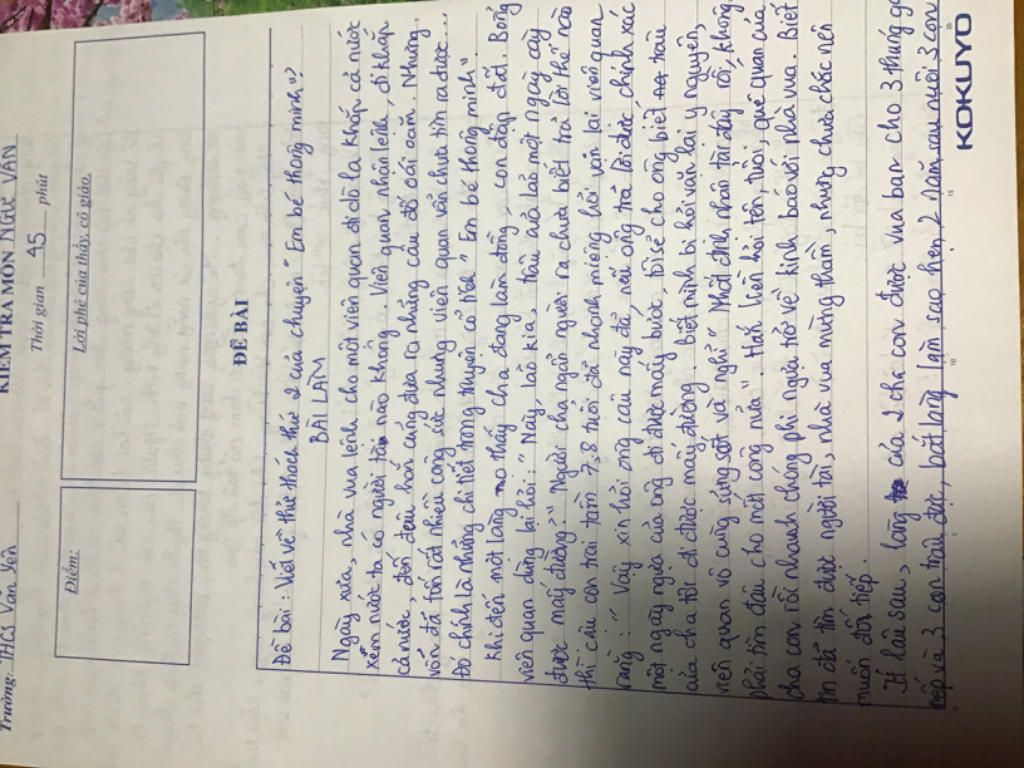 Trường: THCS Van Yên
KIỂM TRA MÔN NGỮ VĂN
Thời gian 45 phút
Điểm:
Lời phê của thầy, cô giáo:
ĐỀ BÀI
Đề bài: Viết về thử thách thứ 2 của chuyện "Em bé thông minh"?
BÀI LÀM
Ngày xửa, nhà vua lệnh cho một viên quan đi dò la khắp cả nước
xem nước ta có người tài nào không. Viên quan nhận lệnh, đi khắp
cả nước, đến đâu hắn cũng đưa ra những câu đố oái oăm. Nhưng
vốn đã tốn rất nhiều công sức nhưng viên quan vẫn chưa tìm ra được...
Đó chính là những chi tiết trong truyện cổ tích "Em bé thông minh"
Khi đến một làng nọ thấy cha đang làm đồng, con đập đất. Bỗng
viên quan dừng lại hỏi: "Này, lão kia, trâu của lão một ngày cày
được mấy đường?" Người cha ngẩn người ra chưa biết trả lời thế nào
thì cậu con trai tầm 7, 8 tuổi đã nhanh miệng hỏi vặn lại viên quan
rằng: "Vậy xin hỏi ông câu này đã, nếu ông trả lời được chính xác
một ngày ngựa của ông đi được mấy bước, tôi sẽ cho ông biết trâu
của cha tôi đi được mấy đường. Biết mình bị hỏi vặn lại y nguyên,
viên quan vô cùng sửng sốt và nghĩ "Nhất định nhân tài đây rồi, không
phải tìm đâu cho mất công nữa" Hắn liền hỏi tên, tuổi, quê quán của
cha con rồi nhanh chóng phi ngựa trở về kinh báo với nhà vua. Biết
tin đã tìm được người tài, nhà vua mừng thầm, nhưng chưa chắc nên
muốn đố tiếp.
Ít lâu sau, làng của 2 cha con được vua ban cho 3 thúng gạo
nếp và 3 con trâu đực, bắt làng làm sao hẹn 2 năm sau nuôi 3 con
KOKUYO